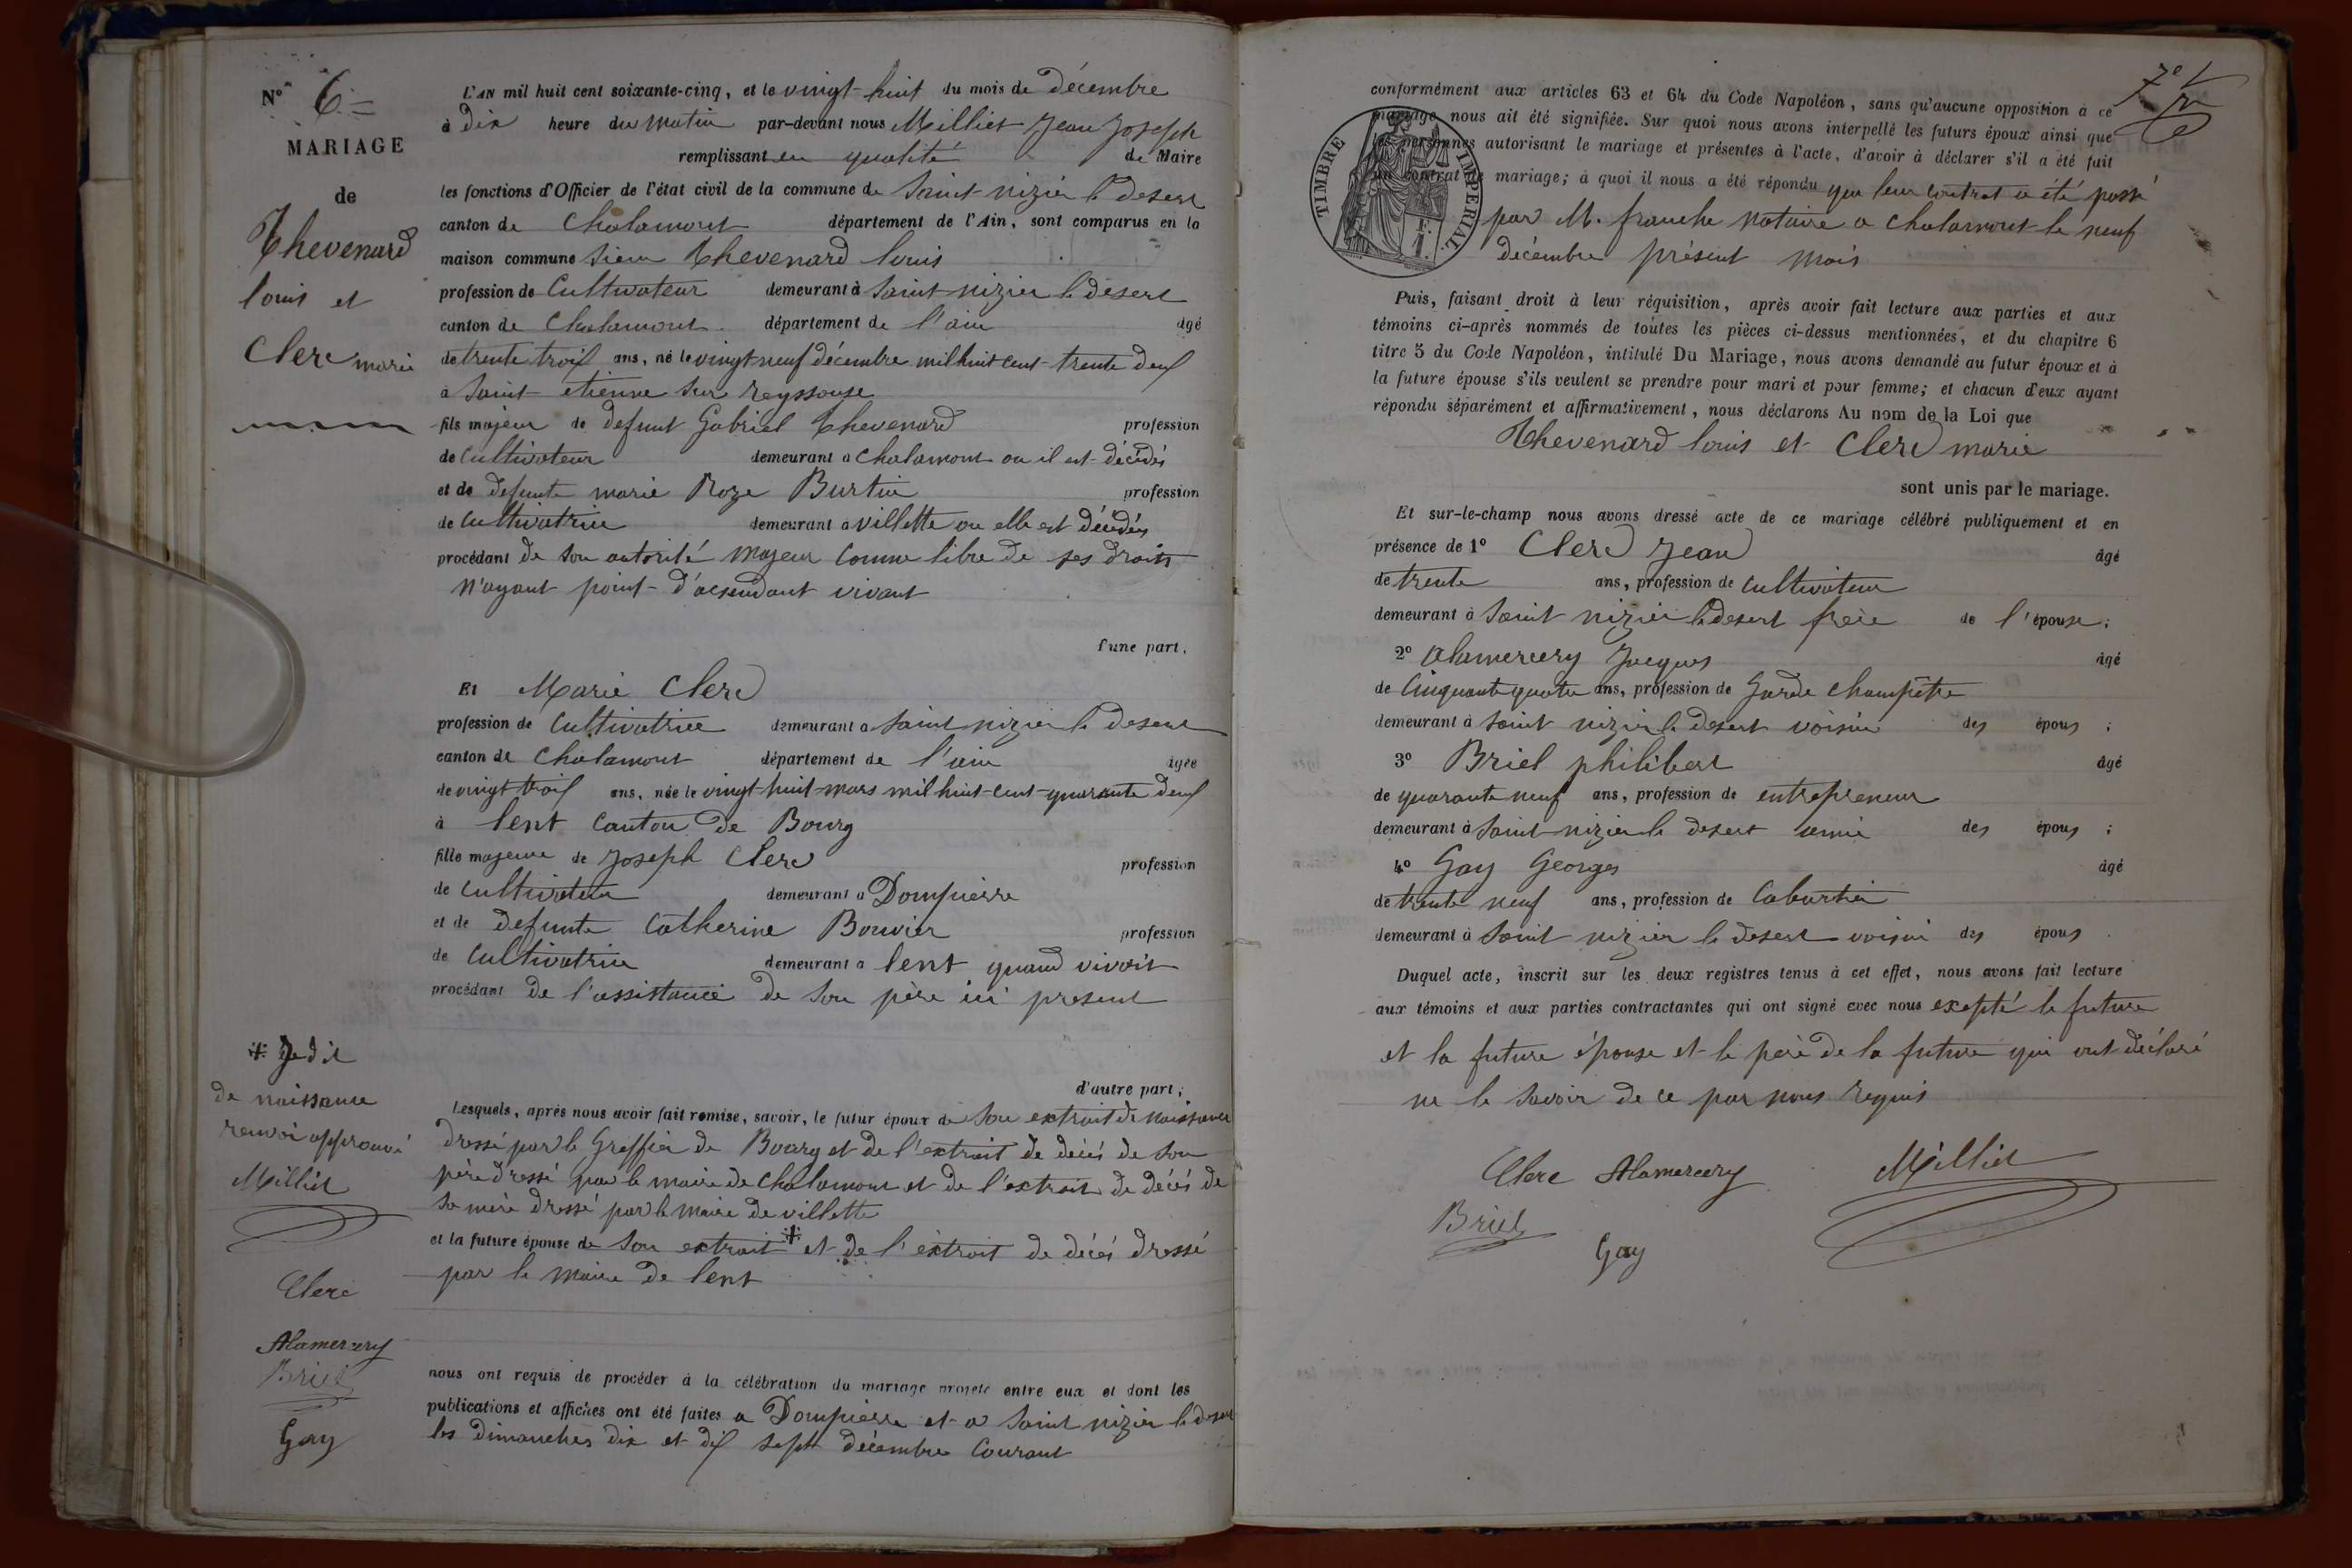 N° 6=
MARIAGE
de
Thevenard
louis et
Clerc marie
L'AN mil huit cent soixante-cinq, et le vingt-huit du mois de décembre
à dix heure du matin par-devant nous Milliet Jean Joseph
remplissant en qualité de Maire
les fonctions d'Officier de l'état civil de la commune de Saint nizier le desert
canton de Chalamont département de l'Ain, sont comparus en la
maison commune sieur Thevenard louis
profession de Cultivateur demeurant à Saint nizier le desert
canton de Chalamont département de l'ain âgé
de trente trois ans, né le vingt neuf décembre mil huit cent trente deux
à Saint etienne sur reyssouse
fils majeur de defunt Gabriel Thevenard profession
de Cultivateur demeurant à Chalamont ou il est décédés
et de defunte marie Roze Burtin profession
de Cultivatrice demeurant à villette ou elle est décédés
procédant de son autorité majeur comme libre de ses droits
n'ayant point d'acsendant vivant
d'une part,
Et Marie Clerc
profession de Cultivatrice demeurant à Saint nizier le desert
canton de Chalamont département de l'ain âgée
de vingt trois ans, née le vingt-huit mars mil huit-cent-quarante deux
à lent Canton de Bourg
fille majeure de Joseph Clerc profession
de Cultivateur demeurant à Dompierre
et de defunte Catherine Bouvier profession
de Cultivatrice demeurant à lent quand vivait
procédant de l'assistance de son père ici present
d'autre part;
Lesquels, après nous avoir fait remise, savoir, le futur époux de son extrait de naissance
dressé par le Greffier de Bourg et de l'extrait de décés de son
père dressé par le maire de Chalamont et de l'extrait de décés de
sa mère dressé par le maire de villette
et la future épouse de son extrait + et de l'extrait de décés dressé
par le maire de lent
nous ont requis de procéder à la célébration du mariage projeté entre eux et dont les
publications et affiches ont été faites a Dompierre et a Saint nizier le desert
les dimanches dix et dix sept décembre Courant
+
de naissance
renvoi approuvé
Milliet
Clerc
Alamercery
Briel
Gay
7e
conformément aux articles 63 et 64 du Code Napoléon, sans qu'aucune opposition à ce
mariage nous ait été signifiée. Sur quoi nous avons interpellé les futurs époux ainsi que
les personnes autorisant le mariage et présentes à l'acte, d'avoir à déclarer s'il a été fait
un contrat de mariage; à quoi il nous a été répondu que leur contrat a été passé
par M. franche notaire a Chalamont le neuf
décembre présent mois
TIMBRE IMPERIAL
Puis, faisant droit à leur réquisition, après avoir fait lecture aux parties et aux
témoins ci-après nommés de toutes les pièces ci-dessus mentionnées, et du chapitre 6
titre 5 du Code Napoléon, intitulé Du Mariage, nous avons demandé au futur époux et à
la future épouse s'ils veulent se prendre pour mari et pour femme; et chacun d'eux ayant
répondu séparément et affirmativement, nous déclarons Au nom de la Loi que
Thevenard louis et Clerc marie
sont unis par le mariage.
Et sur-le-champ nous avons dressé acte de ce mariage célébré publiquement et en
présence de 1° Clerc Jean âgé
de trente ans, profession de Cultivateur
demeurant à Saint nizier le desert frère de l'épouse;
2° Alamercery Jacques âgé
de Cinquante quatre ans, profession de Garde Champêtre
demeurant à Saint nizier le desert voisin des époux;
3° Briel philibert âgé
de quarante neuf ans, profession de entrepreneur
demeurant à Saint nizier le desert amie des époux;
4° Gay Georges âgé
de trente neuf ans, profession de Cabartier
demeurant à Saint nizier le desert voisin des époux.
Duquel acte, inscrit sur les deux registres tenus à cet effet, nous avons fait lecture
aux témoins et aux parties contractantes qui ont signé avec nous excepté le future
et la future épouse et le père de la future qui ont déclaré
ne le savoir de ce par nous requis
Clerc Alamercery Milliet
Briel
Gay